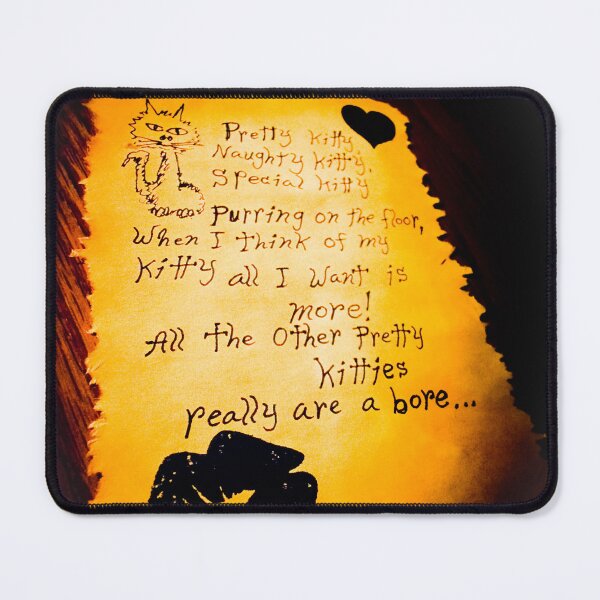 Pretty Kitty,
Naughty Kitty,
Special Kitty
Purring on the floor,
When I Think of my
Kitty all I Want is
more!
All The Other Pretty
Kitties
really are a bore...